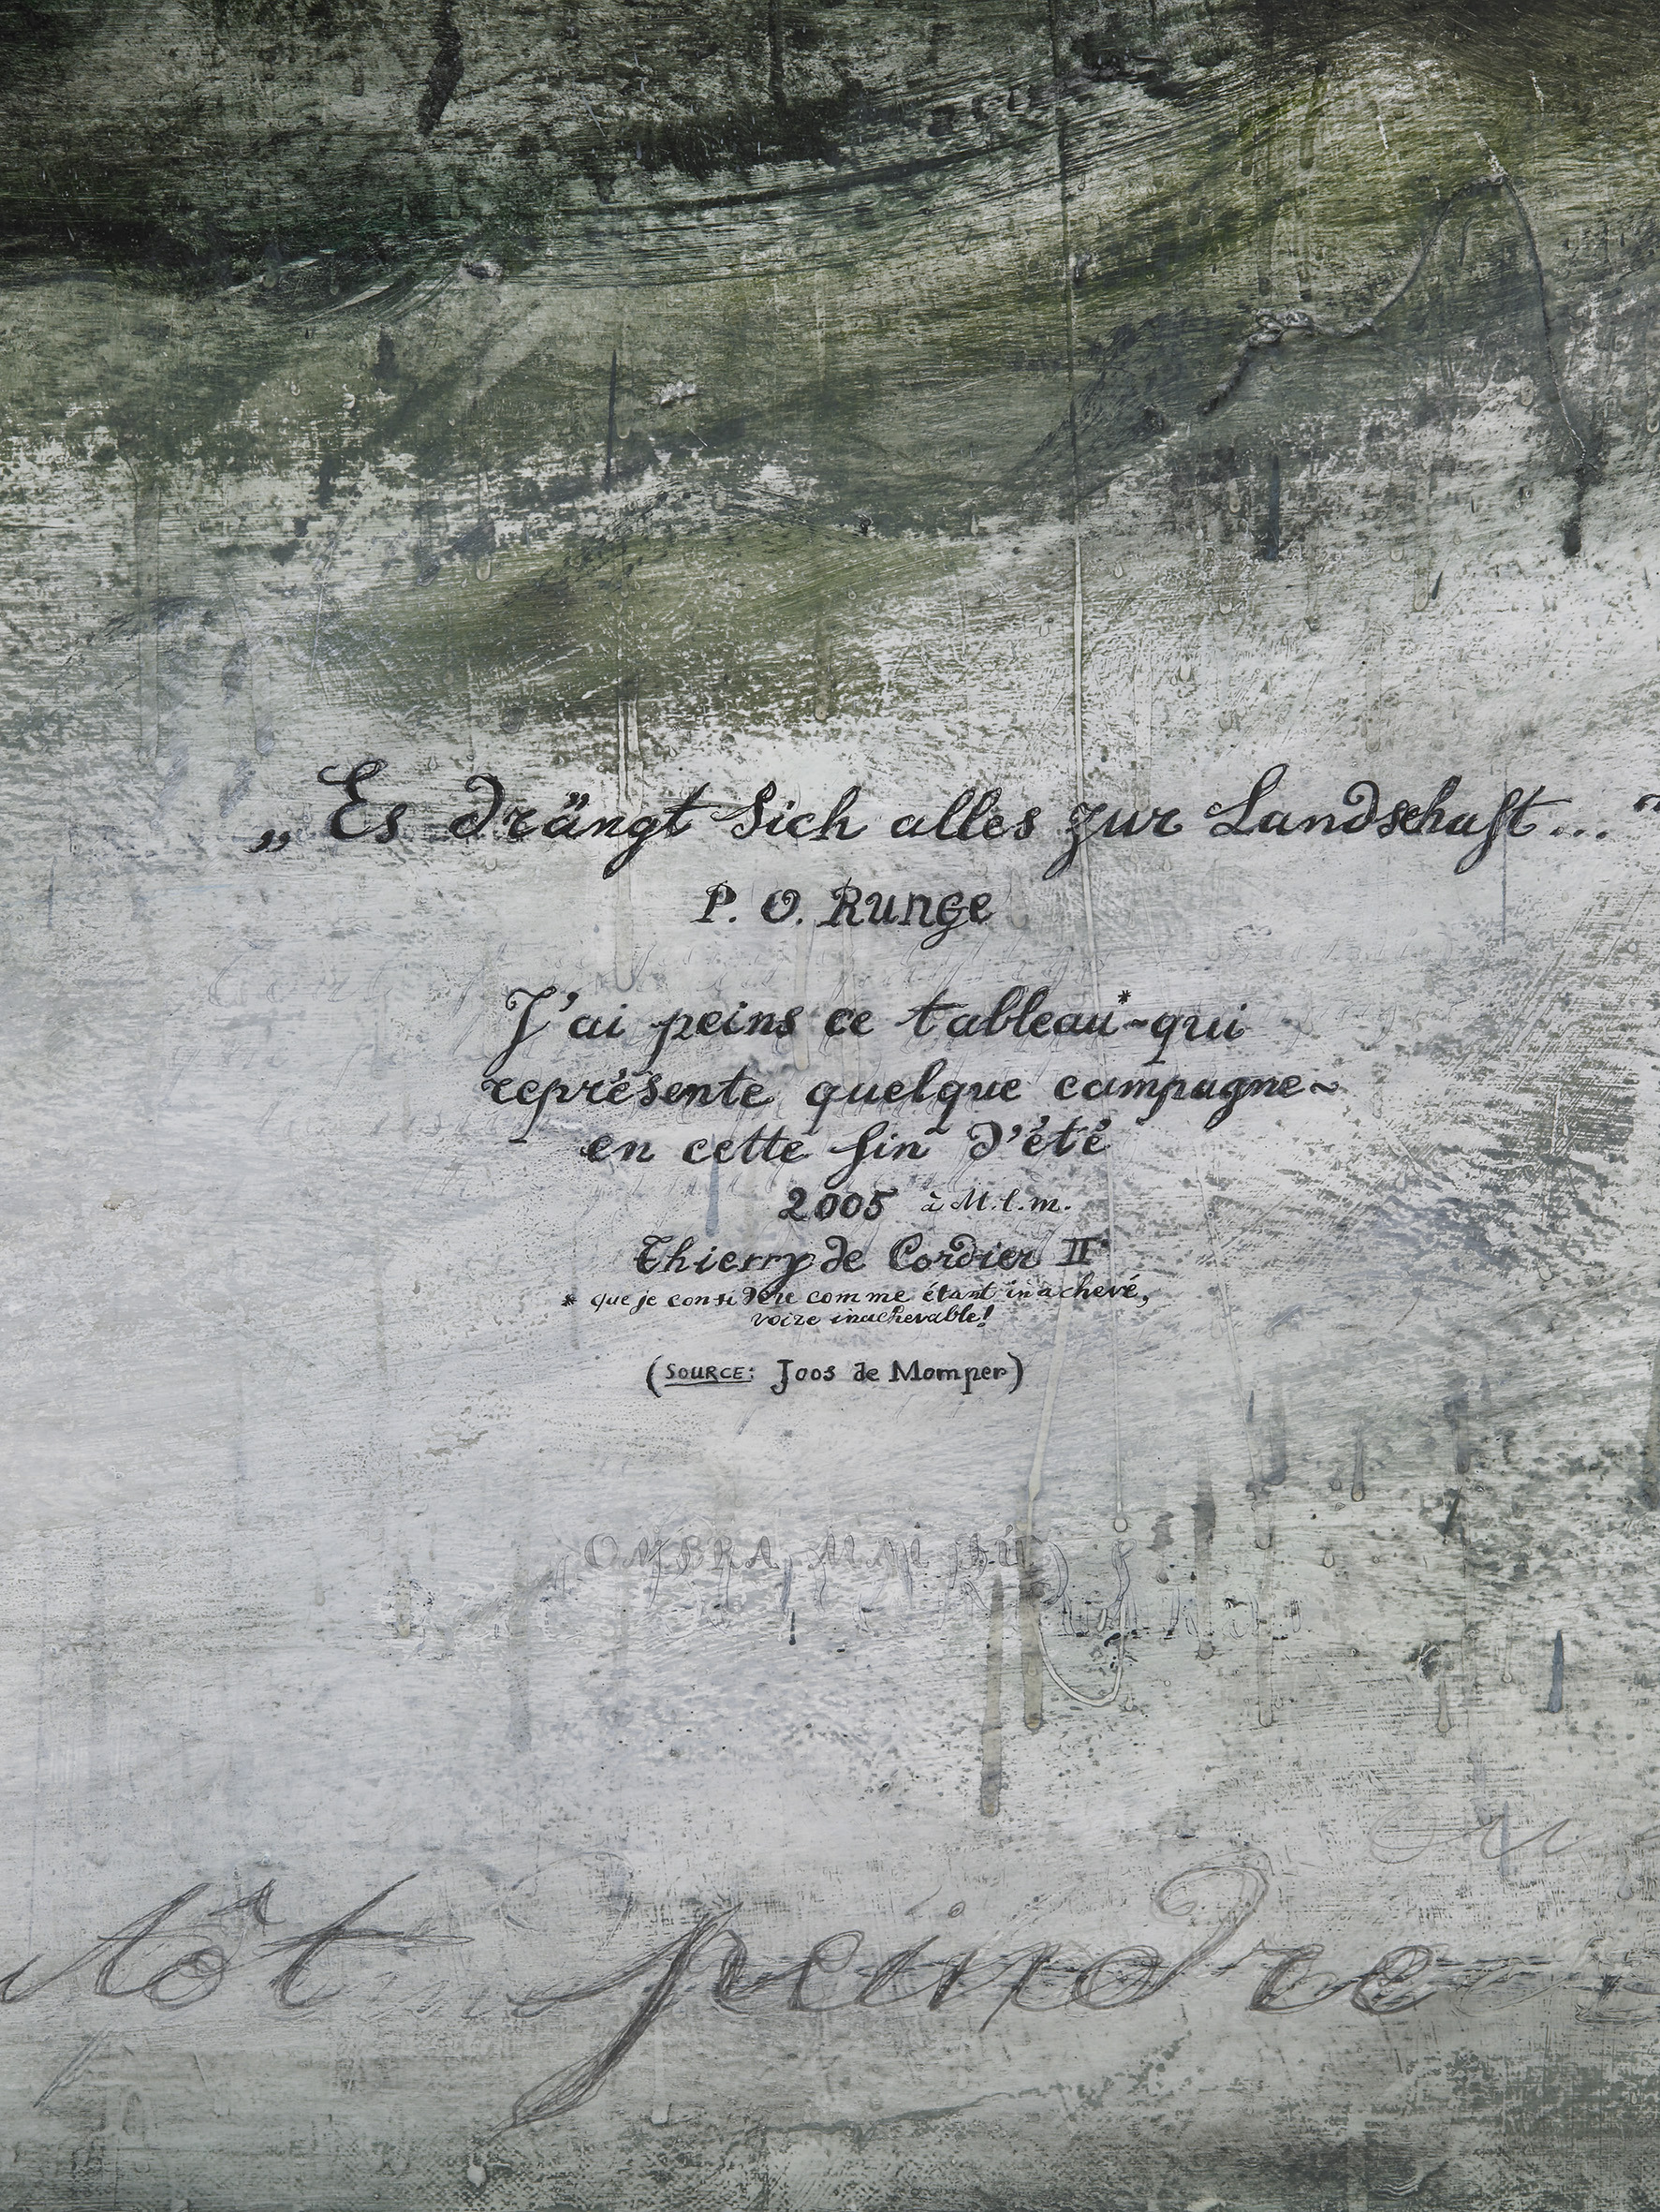 „Es drängt sich alles zur Landschaft..."
P. O. Runge
J'ai peins ce tableau*-qui
représente quelque campagne~
en cette fin d'été
2005 à M.l.m.
Thierry de Cordier II
* que je considère comme étant inachevé,
voire inachevable!
(SOURCE: Joos de Momper)
OMBRA MAI FÙ
ou
tôt peindre